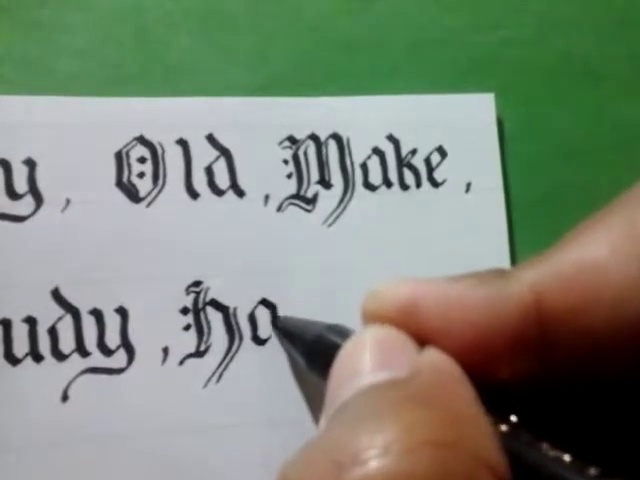 y, Old, Make,
udy, Ho